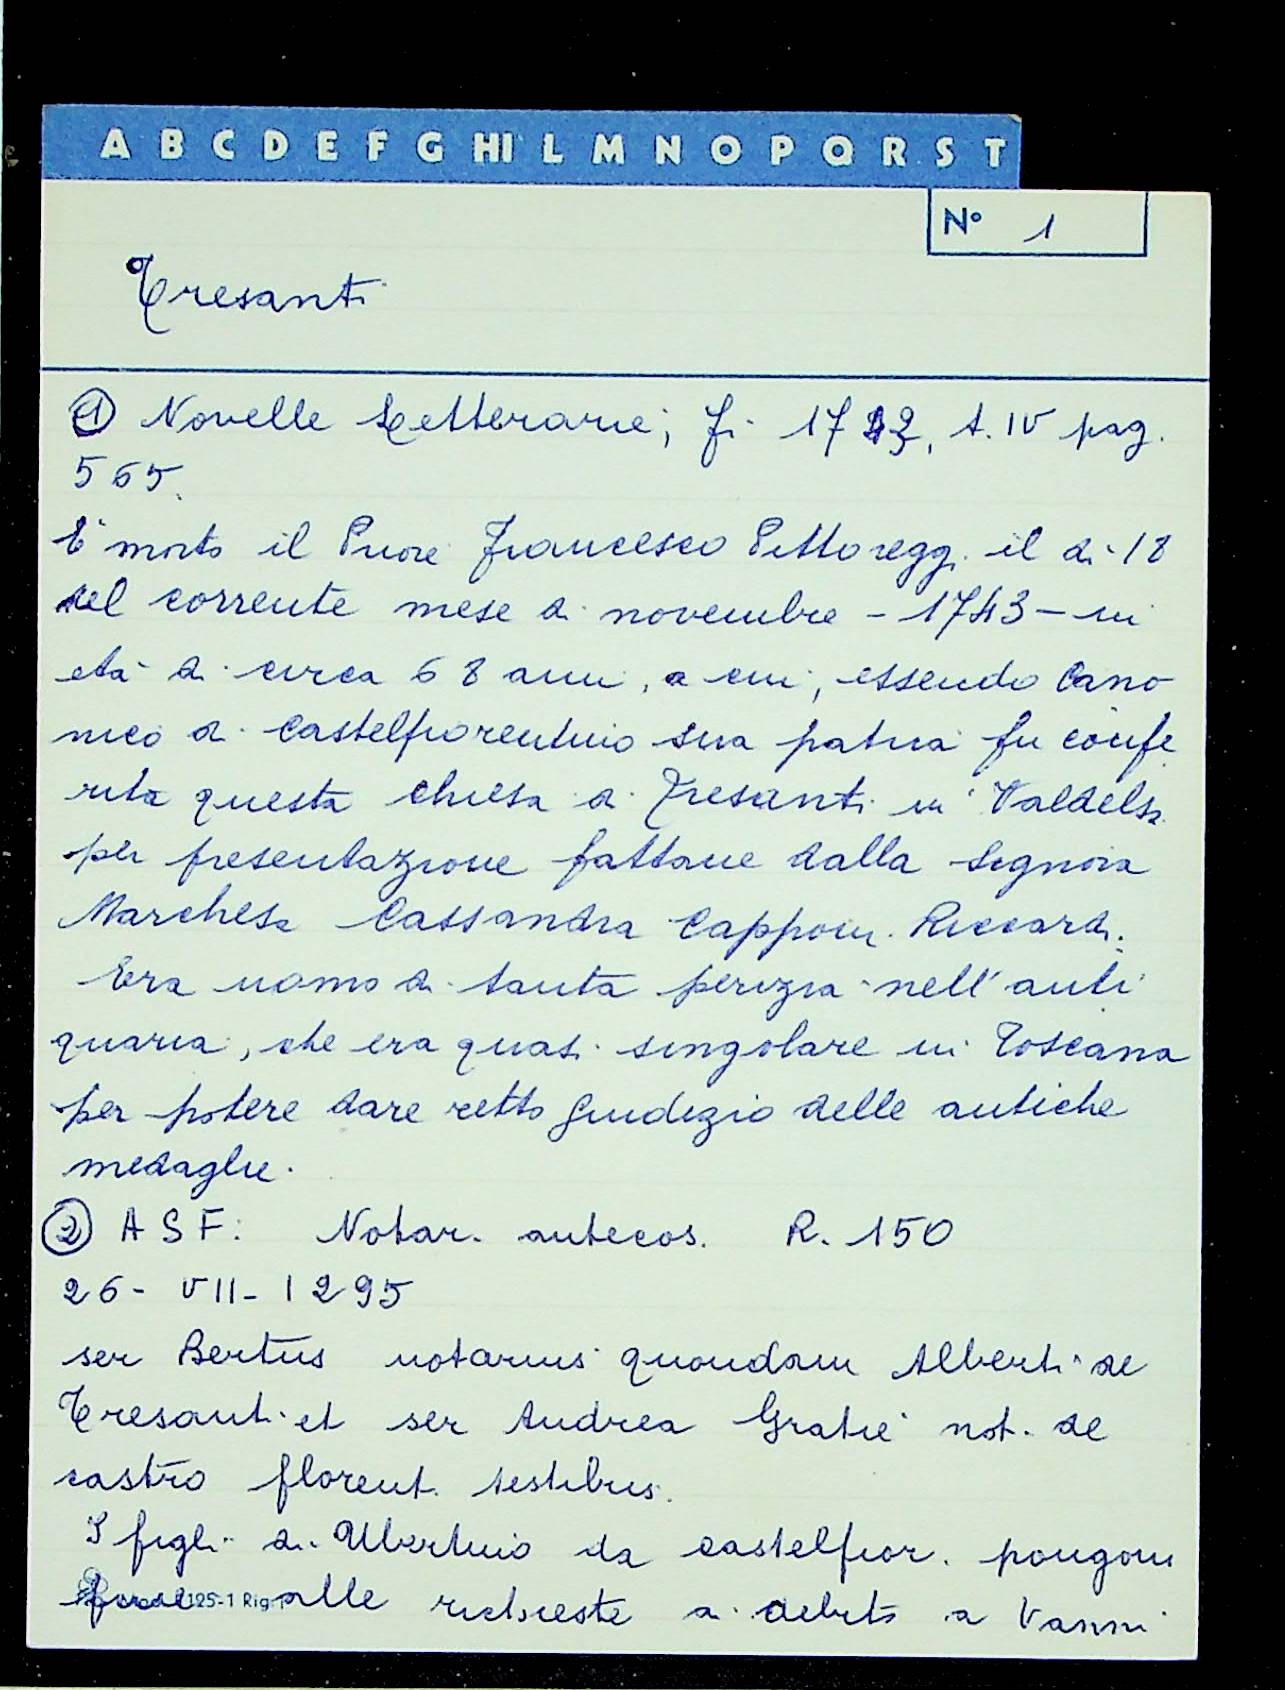 A B C D E F G HI L M N O P Q R S T
Nº 1
Tresanti
① Novelle Letterarie, Fi. 1743, t. IV pag.
565.
È morto il Priore Francesco Pittoreggi il dì 18
del corrente mese di novembre - 1743 - in
età di circa 68 anni, a cui, essendo Cano
nico di Castelfiorentino sua patria fu confe
rita questa chiesa di Tresanti in Valdelsa
per presentazione fattane dalla Signora
Marchesa Cassandra Capponi Riccardi.
Era uomo di tanta perizia nell'anti
quaria, che era quasi singolare in Toscana
per potere dare retto giudizio delle antiche
medaglie.
② ASF: Notar. antecos. R. 150
26 - VII - 1295
ser Bertus notarius quondam Alberti de
Tresanti et ser Andrea Gratie not. de
castro florent. testibus.
I figli di Ubertino da Castelfior. pongon
fine alle richieste di debito a Vanni
125-1 Rig.